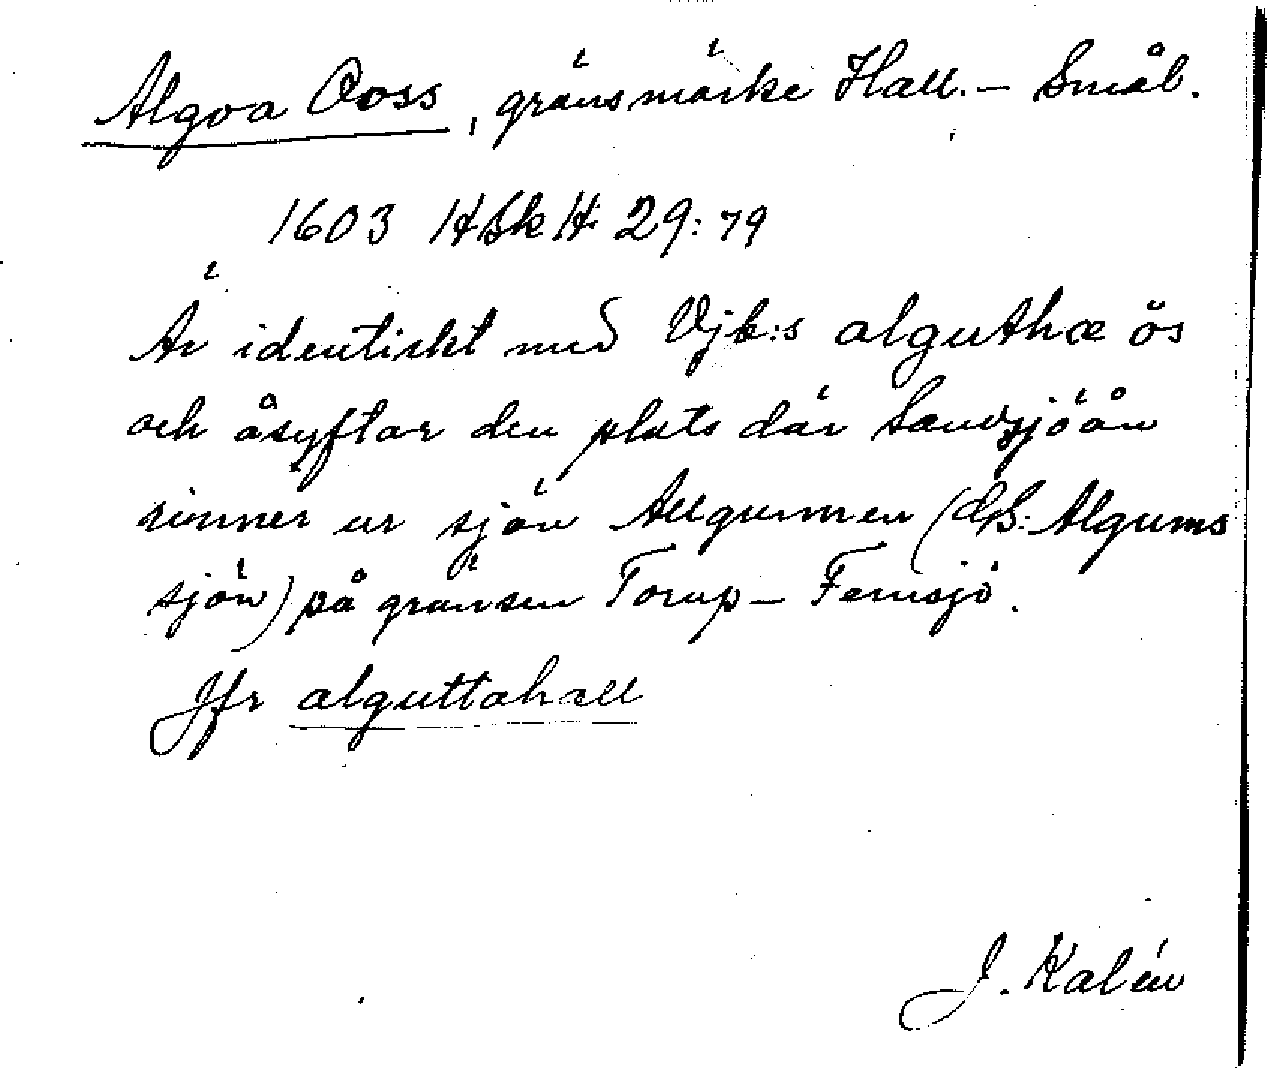 Algoa Ooss, gränsmärke Hall. – Smål.
1603 HSkH 29:79
Är identiskt med Vjb:s alguthæ ös
och åsyftar den plats där Sandsjöån
rinner ur sjön Allgunnen (GS: Algums
sjön) på gränsen Torup – Femsjö.
Jfr alguttahall
J. Kalén